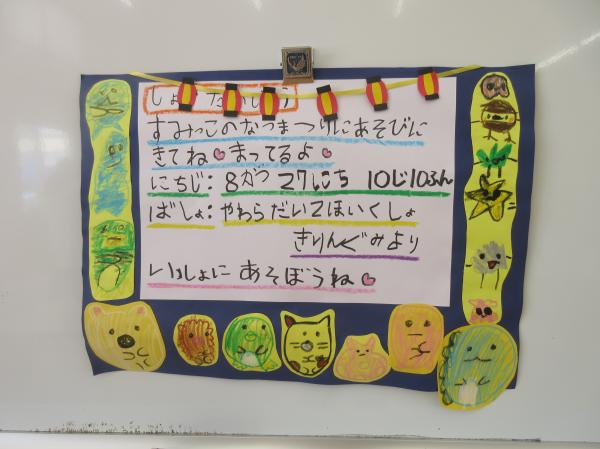 しょうたいじょう
すみっこのなつまつりにあそびに
きてね まってるよ
にちじ: 8がつ 27にち 10じ10ふん
ばしょ: やわらだい2ほいくしょ
きりんぐみより
いっしょに あそぼうね